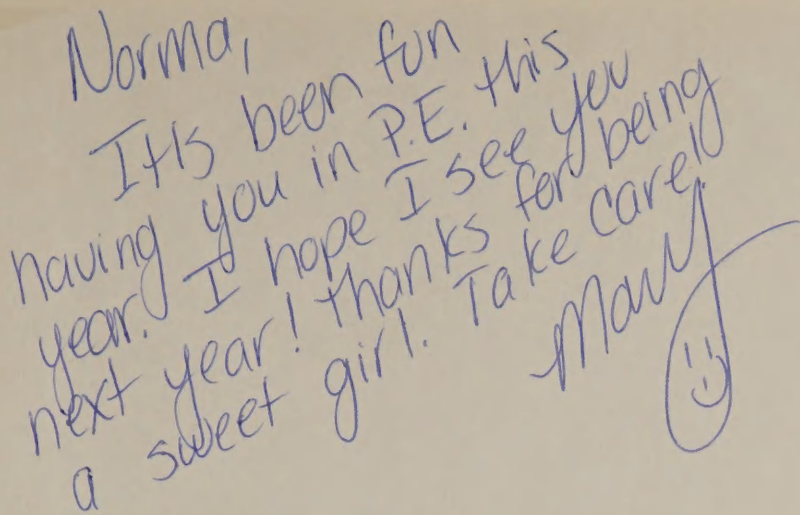 Norma,
It's been fun
having you in P.E. this
year. I hope I see you
next year! thanks for being
a sweet girl. Take care!
Mary